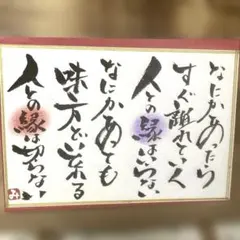 なにかあったら
すぐ離れていく
人との縁はいらない
なにかあっても
味方でいる
人との縁は切らない